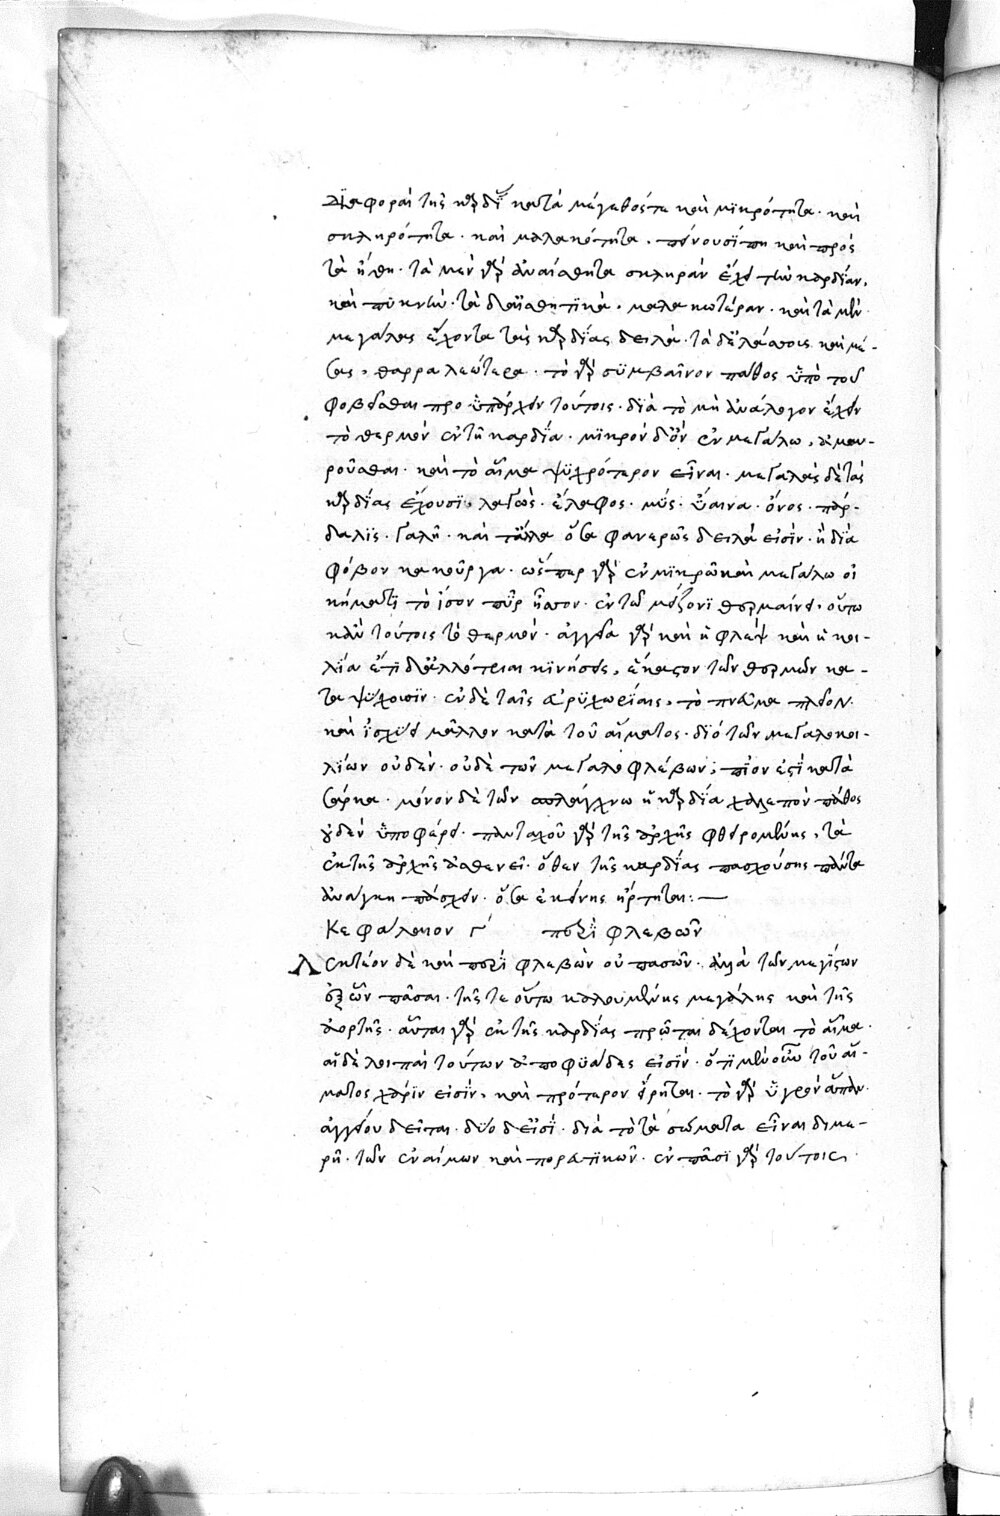 διαφοραὶ τῆς καρδί κατὰ μέγεθός τε καὶ μικρότητα· καὶ
σκληρότητα· καὶ μαλακότητα· τείνουσί πη καὶ πρὸς
τὰ ἤθη· τὰ μὲν γὰρ ἀναίσθητα σκληρὰν ἔχει τὴν καρδίαν,
καὶ πυκνήν· τὰ δὲ αἰσθητικὰ, μαλακωτέραν· καὶ τὰ μὲν
μεγάλας ἔχοντα τὰς καρδίας δειλά· τὰ δὲ ἐλάσσοις καὶ μέ-
σας, θαρραλεώτερα· τὸ γὰρ συμβαῖνον πάθος ὑπὸ τοῦ
φοβεῖσθαι προϋπάρχειν τούτοις· διὰ τὸ μὴ ἀνάλογον ἔχειν
τὸ θερμὸν ἐν τῇ καρδίᾳ· μικρὸν δ' ὂν ἐν μεγάλω, ἀμαυ-
ροῦσθαι· καὶ τὸ αἷμα ψυχρότερον εἶναι· μεγάλας δὲ τὰς
καρδίας ἔχουσι, λαγώς· ἔλαφος· μῦς· ὕαινα· ὄνος· πάρ-
δαλις· γαλῆ· καὶ τἄλλα ὅσα φανερῶς δειλά εἰσιν· ἢ διὰ
φόβον κακοῦργα· ὥσπερ γὰρ ἐν μικρῶ καὶ μεγάλω οἰ
κήματι τὸ ἴσον πῦρ ἧττον· ἐν τῶ μείζονι θερμαίνει, οὕτω
κἀν τούτοις τὸ θερμόν· ἀγγεῖα γὰρ καὶ ἡ φλὲψ καὶ ἡ κοι-
λία ἔτι δ' ἀλλότριαι κινήσεις, ἕκαστον τῶν θερμῶν κα-
ταψύχουσιν· ἐν δὲ ταῖς εὐρυχωρίαις, τὸ πνεῦμα πλεῖον
καὶ ἰσχύει μᾶλλον κατὰ τοῦ αἵματος· διὸ τῶν μεγαλοκοι-
λίων οὐδὲν· οὐδὲ τῶν μεγαλοφλέβων, πῖον ἐστὶ κατὰ
σάρκα· μόνον δὲ τῶν σπλάγχνω ἡ καρδία χαλεπὸν πάθος
οὐδὲν ὑποφέρει· πανταχοῦ γὰρ τῆς ἀρχῆς φθειρομένης, τὰ
ἐκ τῆς ἀρχῆς ἀσθενεῖ· ὅθεν τῆς καρδίας πασχούσης πάντα
ἀνάγκη πάσχειν· ὅσα ἐκείνης ἤρτηται:—
Κεφάλαιον Γ περὶ φλεβῶν
Λεκτέον δὲ καὶ περὶ φλεβῶν οὐ πασῶν· ἀλλὰ τῶν μεγίστων
ἐξ ὧν πᾶσαι· τῆς τε οὕτω καλουμένης μεγάλης καὶ τῆς
ἀορτῆς· αὗται γὰρ ἐκ τῆς καρδίας πρῶται δέχονται τὸ αἷμα·
αἱ δὲ λοιπαὶ τούτων ἀποφυάδες εἰσίν· ὅτι μὲν οὖν τοῦ αἵ-
ματος χάριν εἰσίν, καὶ πρότερον εἴρηται· τὸ γὰρ ὑγρὸν ἅπαν
ἀγγείου δεῖται· δύο δ' εἰσί· διὰ τὸ τὰ σώματα εἶναι διμε-
ρῆ· τῶν ἐναίμων καὶ πορευτικῶν· ἐν πᾶσι γὰρ τούτοις·